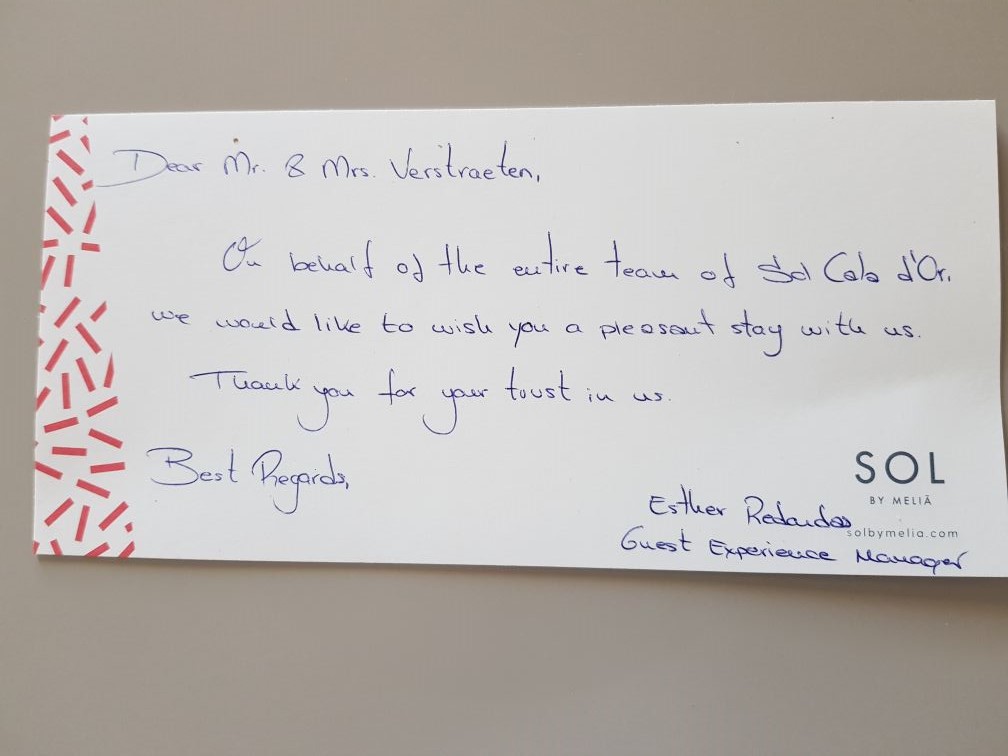 Dear Mr. & Mrs. Verstraeten,
On behalf of the entire team of Sol Cala d'Or,
we would like to wish you a pleasant stay with us.
Thank you for your trust in us.
Best Regards,
SOL
BY MELIÃ
Esther
solbymelia.com
Guest Experience Manager